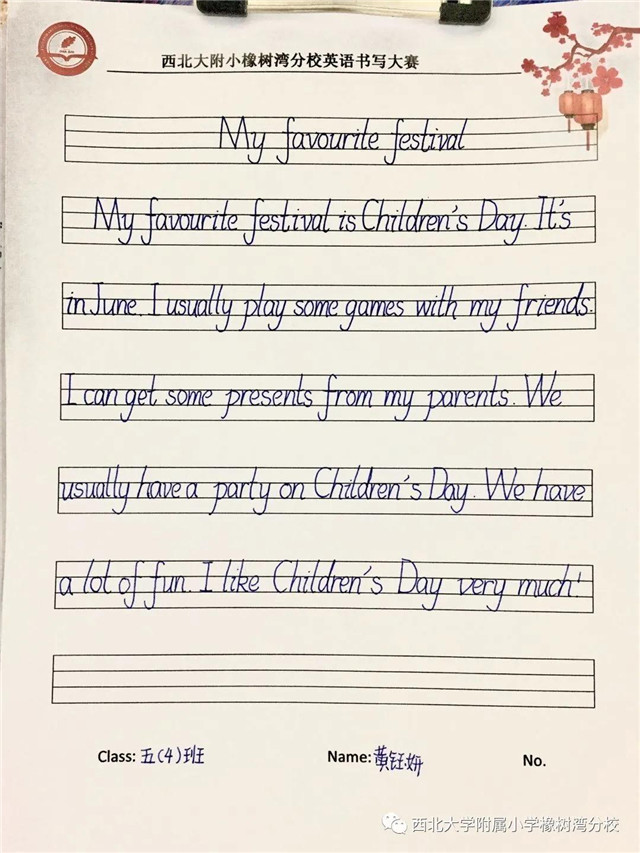 西北大附小橡树湾分校英语书写大赛
My favourite festival
My favourite festival is Children's Day. It's
in June. I usually play some games with my friends.
I can get some presents from my parents. We
usually have a party on Children's Day. We have
a lot of fun. I like Children's Day very much!
Class: 五(4)班 Name: 黄钰妍 No.
西北大学附属小学橡树湾分校